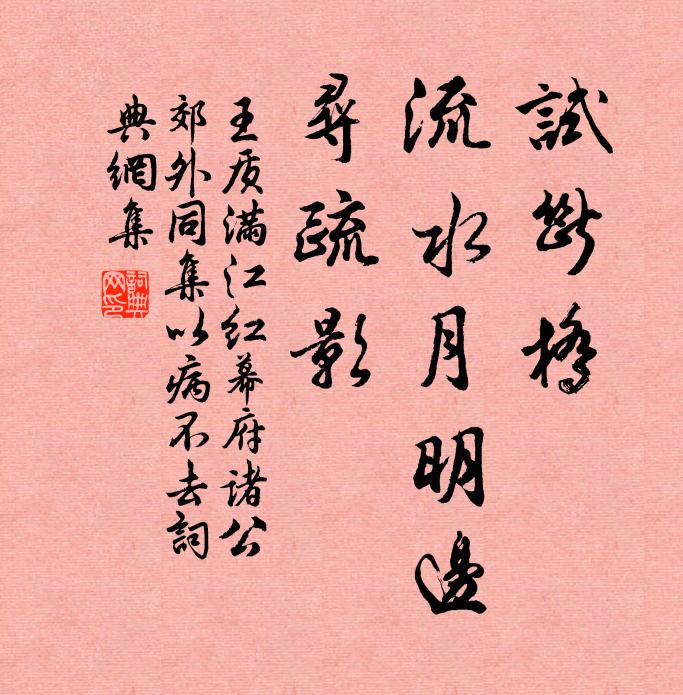 試斷橋
流水月明邊
尋疏影
王质满江红幕府诸公
郊外同集以病不去詞
典網集
詞典网印